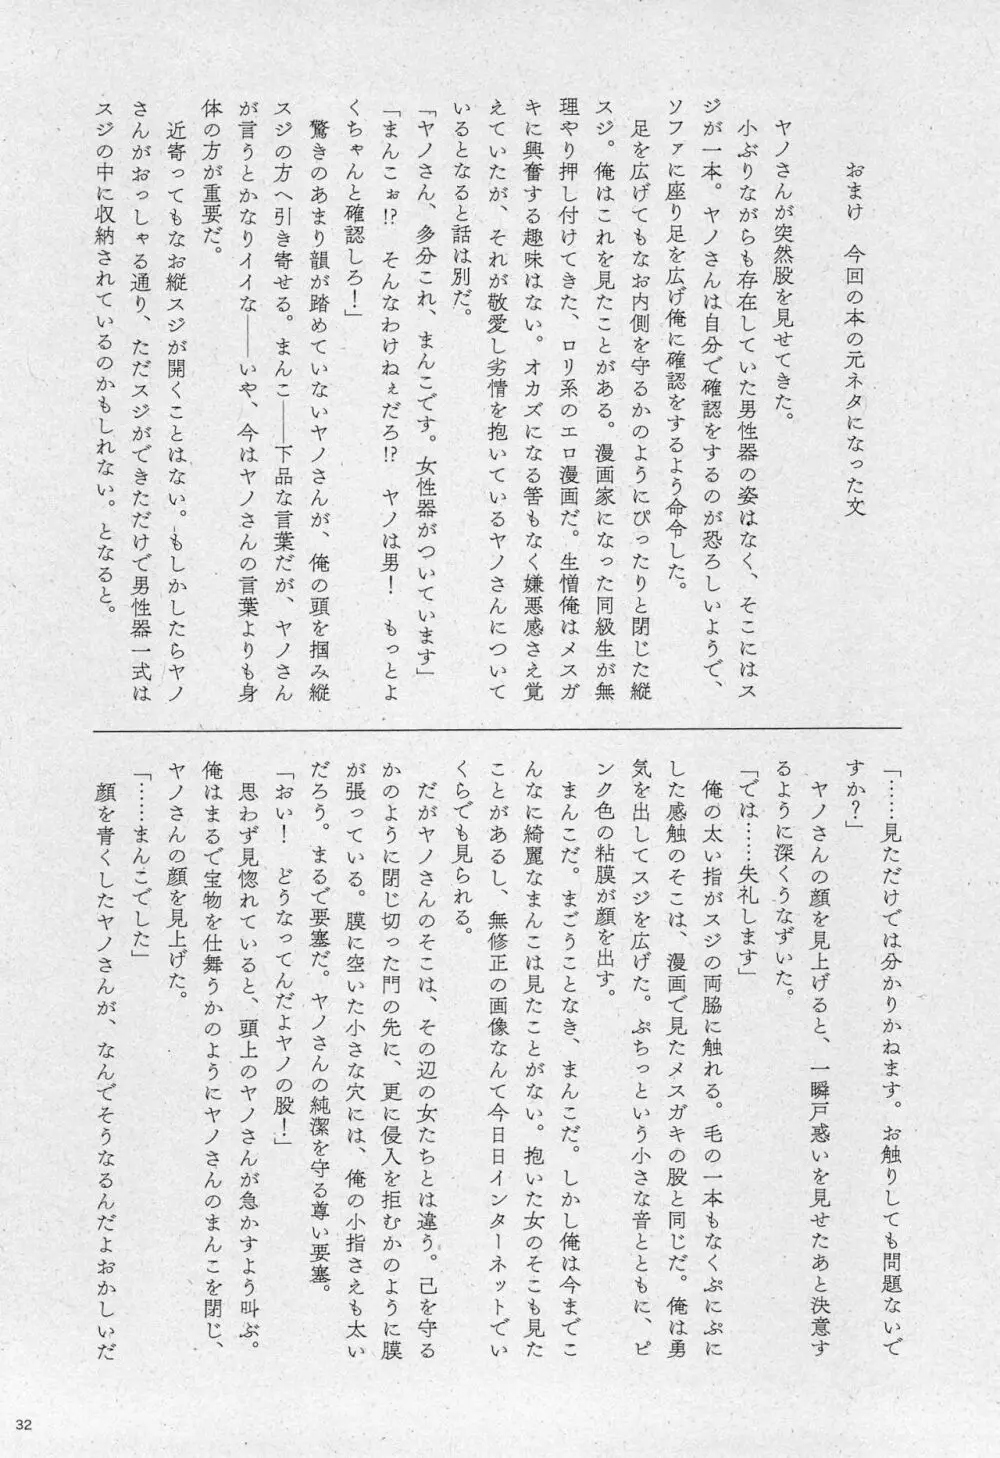 おまけ　今回の本の元ネタになった文
ヤノさんが突然股を見せてきた。
小ぶりながらも存在していた男性器の姿はなく、そこにはス
ジが一本。ヤノさんは自分で確認をするのが恐ろしいようで、
ソファに座り足を広げ俺に確認をするよう命令した。
足を広げてもなお内側を守るかのようにぴったりと閉じた縦
スジ。俺はこれを見たことがある。漫画家になった同級生が無
理やり押し付けてきた、ロリ系のエロ漫画だ。生憎俺はメスガ
キに興奮する趣味はない。オカズになる筈もなく嫌悪感さえ覚
えていたが、それが敬愛し劣情を抱いているヤノさんについて
いるとなると話は別だ。
「ヤノさん、多分これ、まんこです。女性器がついています」
「まんこぉ!?　そんなわけねぇだろ!?　ヤノは男！　もっとよ
くちゃんと確認しろ！」
驚きのあまり韻が踏めていないヤノさんが、俺の頭を掴み縦
スジの方へ引き寄せる。まんこ――下品な言葉だが、ヤノさん
が言うとかなりイイな――いや、今はヤノさんの言葉よりも身
体の方が重要だ。
近寄ってもなお縦スジが開くことはない。もしかしたらヤノ
さんがおっしゃる通り、ただスジができただけで男性器一式は
スジの中に収納されているのかもしれない。となると。
「……見ただけでは分かりかねます。お触りしても問題ないで
すか？」
ヤノさんの顔を見上げると、一瞬戸惑いを見せたあと決意す
るように深くうなずいた。
「では……失礼します」
俺の太い指がスジの両脇に触れる。毛の一本もなくぷにぷに
した感触のそこは、漫画で見たメスガキの股と同じだ。俺は勇
気を出してスジを広げた。ぷちっという小さな音とともに、ピ
ンク色の粘膜が顔を出す。
まんこだ。まごうことなき、まんこだ。しかし俺は今までこ
んなに綺麗なまんこは見たことがない。抱いた女のそこも見た
ことがあるし、無修正の画像なんて今日日インターネットでい
くらでも見られる。
だがヤノさんのそこは、その辺の女たちとは違う。己を守る
かのように閉じ切った門の先に、更に侵入を拒むかのように膜
が張っている。膜に空いた小さな穴には、俺の小指さえも太い
だろう。まるで要塞だ。ヤノさんの純潔を守る尊い要塞。
「おい！　どうなってんだよヤノの股！」
思わず見惚れていると、頭上のヤノさんが急かすよう叫ぶ。
俺はまるで宝物を仕舞うかのようにヤノさんのまんこを閉じ、
ヤノさんの顔を見上げた。
「……まんこでした」
顔を青くしたヤノさんが、なんでそうなるんだよおかしいだ
32